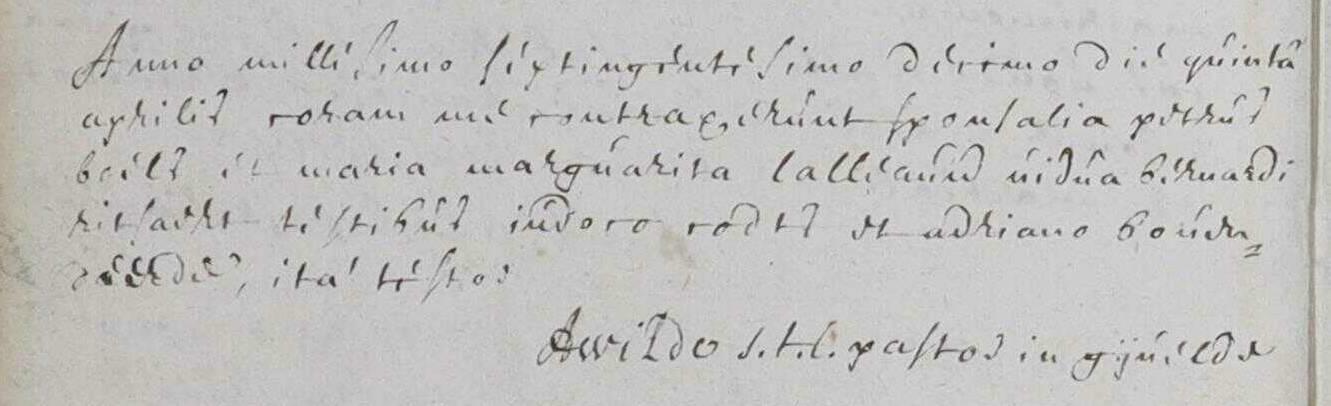 Anno millesimo septingentesimo decimo die quinta
aprilis coram me contraxerunt sponsalia petrus
boels et maria marguarita lallemand uidua bernardi
ritsaert testibus iudoco codts et adriano bouden
ita testor
Awildo s.t.l. pastor in gijuelde